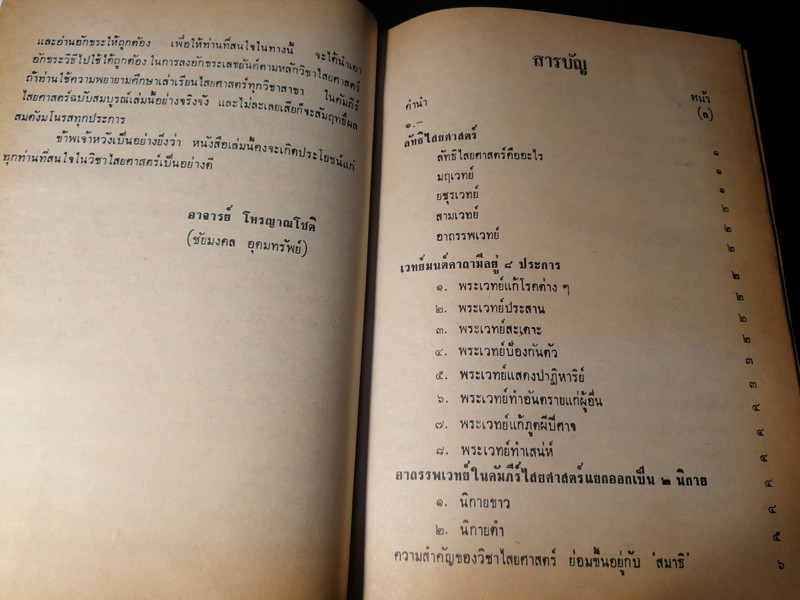 และอ่านอักขระให้ถูกต้อง เพื่อให้ท่านที่สนใจในทางนี้ จะได้นำเอา
อักขระวิธีไปใช้ได้ถูกต้อง ในการลงอักขระเลขยันต์ตามหลักวิชาไสยศาสตร์
ถ้าท่านใช้ความพยายามศึกษาเล่าเรียนไสยศาสตร์ทุกวิชาสาขา ในคัมภีร์
ไสยศาสตร์ฉบับสมบูรณ์เล่มนี้อย่างจริงจัง และไม่ละเลยเสียก็จะสัมฤทธิ์ผล
สมดังมโนรสทุกประการ
ข้าพเจ้าหวังเป็นอย่างยิ่งว่า หนังสือเล่มนี้คงจะเกิดประโยชน์แก่
ทุกท่านที่สนใจในวิชาไสยศาสตร์เป็นอย่างดี
อาจารย์ โหรญาณโชติ
(ชัยมงคล อุดมทรัพย์)
สารบัญ
หน้า
คำนำ (ก)
๑.–
ลัทธิไสยศาสตร์
ลัทธิไสยศาสตร์คืออะไร ๑
มฤเวทย์ ๑
ยชุรเวทย์ ๑
สามเวทย์ ๒
อาถรรพเวทย์ ๒
เวทย์มนต์คาถามีอยู่ ๘ ประการ ๒
๑. พระเวทย์แก้โรคต่าง ๆ ๒
๒. พระเวทย์ประสาน ๒
๓. พระเวทย์สะเดาะ ๒
๔. พระเวทย์ป้องกันตัว ๓
๕. พระเวทย์แสดงปาฏิหาริย์ ๓
๖. พระเวทย์ทำอันตรายแก่ผู้อื่น ๔
๗. พระเวทย์แก้ภูตผีปีศาจ ๔
๘. พระเวทย์ทำเสน่ห์ ๔
อาถรรพเวทย์ในคัมภีร์ไสยศาสตร์แยกออกเป็น ๒ นิกาย ๔
๑. นิกายขาว ๔
๒. นิกายดำ ๕
ความสำคัญของวิชาไสยศาสตร์ ย่อมขึ้นอยู่กับ 'สมาธิ' ๖